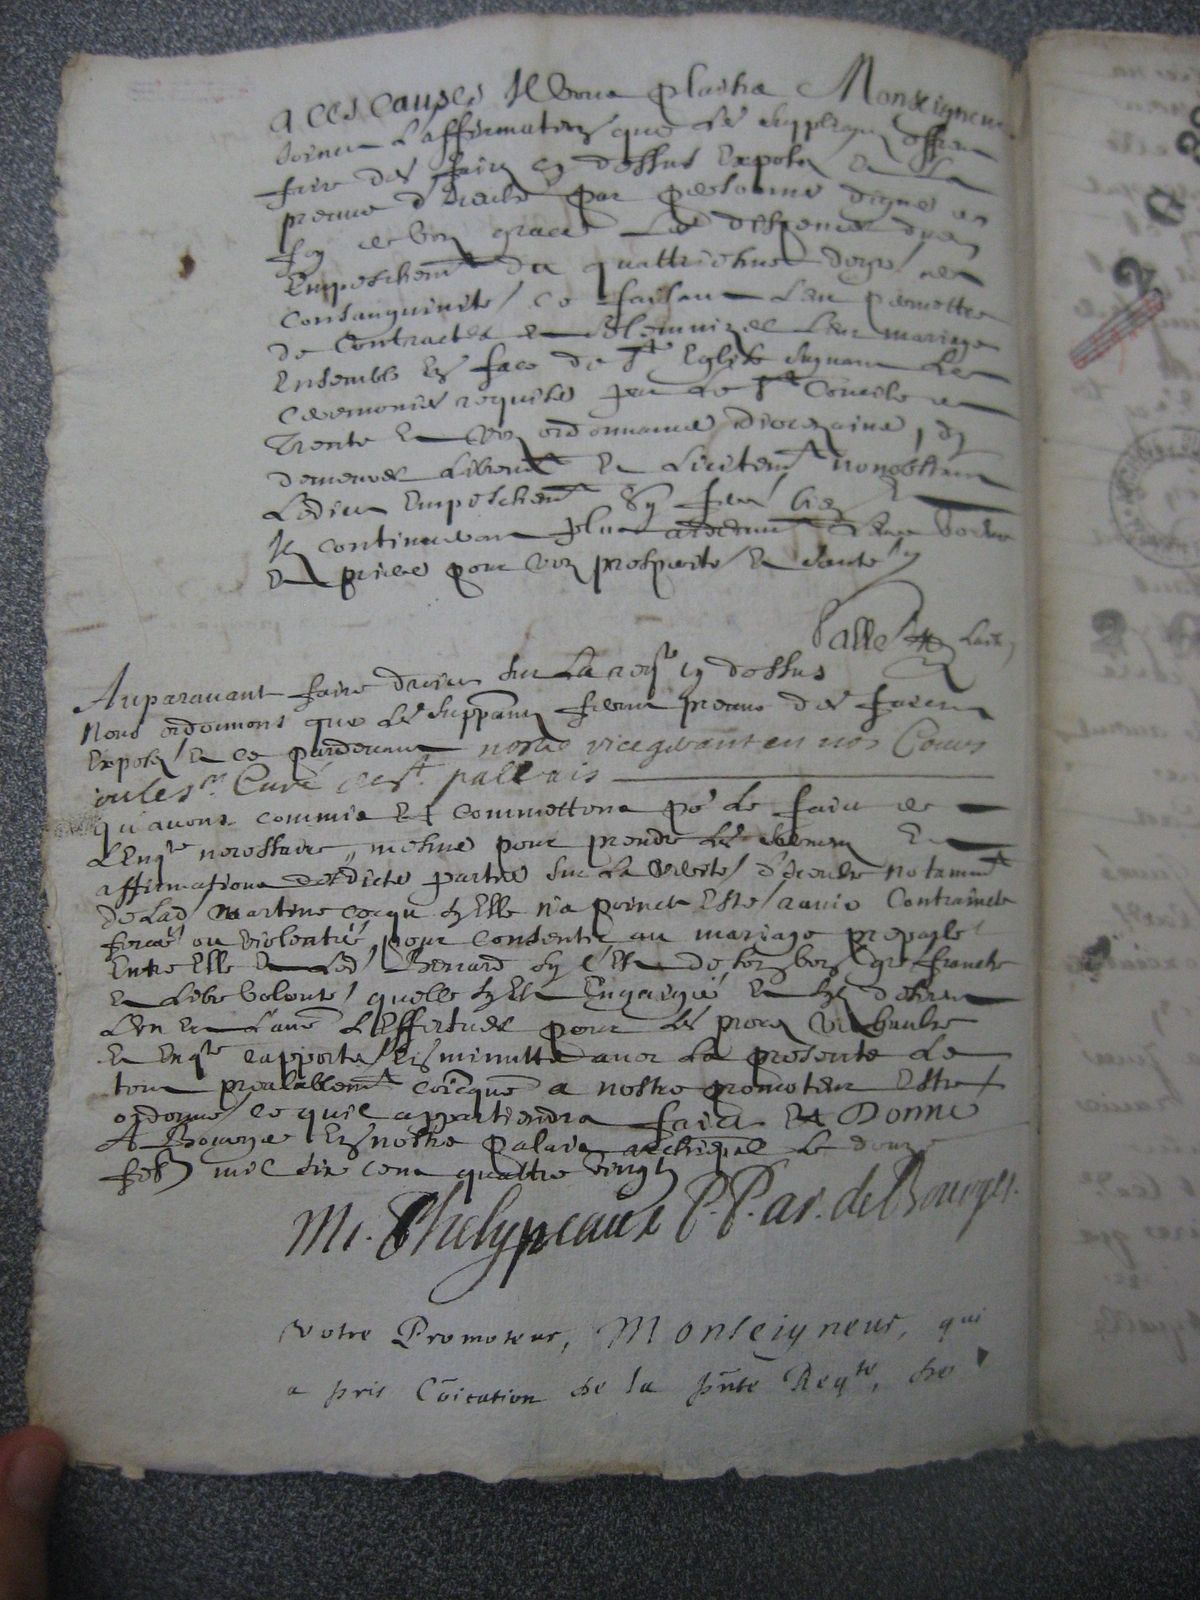 A ces causes Il vous plaira Monseigneur
l'affirmation que les suppliants offrent
faire des faits cy dessus exposez et la
preuve d'iceulx par personne digne de
foy de voz graces les dispenser dud
Empeschemt du quattriesme degré de
Consanguinité ce faisant leur permettre
de Contracter et solemnizer leur mariage
Ensemble En face de Ste Eglise suyvant les
Ceremonies requises par le St Concile de
Trente et voz ordonnances diocezaine, &
demeurer librement et licitemt nonobstant
Ledict Empeschemt Sy ferez bien Et
Ils continueront plus ardemmt leurs vœux
Et prieres pour voz prosperité et santé
Auparavant faire droict sur la reqte cy dessus
Nous ordonnons que les suppans feront preuve des faicts
Exposez en ce pardevant nostre vicegerant en nos Cours
ou le sr. Curé de st. pallais
qu'avons commis et commettons pr le faict de
L'Enqte necessaire, mesme pour prendre les sermens Et
affirmations desdictes parties sur la verité d'iceulx notammt
De Lad Martine cocqu sy Elle n'a poinct Esté ravie Contraincte
forcée ou violentée pour consentir au mariage propozé
Entre Elle et led Bernard sy c'est de son bon gré franche
et libre volonté quelle sy est Engaigée et sy desirent
L'un et l'autre l'Effectuer pour les proces verbaulx
et Enqte rapportés En minutte avec la presente le
tout prealablemt coicqué a nostre promoteur Estre
ordonné ce quil appartiendra faict Et Donné
A Bourges En nostre palais archiepal le douze
febr mil six cens quattre vingt
M. Phelypeaux P. P. ar. de Bourges.
Votre Promoteur, Monseigneur, qui
a pris Cōication de la pnte Reqte, de